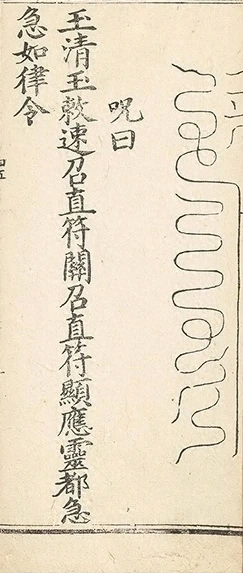 呪曰
玉清玉敕速召直符關召直符顯應靈都急
急如律令